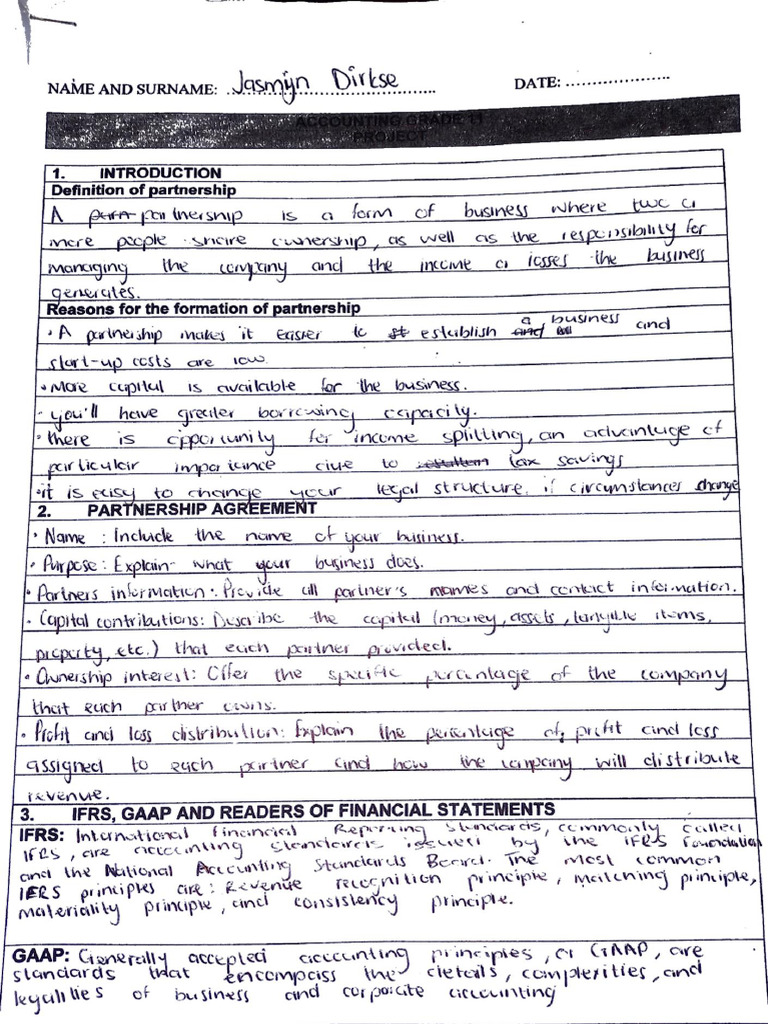 NAME AND SURNAME: Jasmijn Dirkse DATE: ....................
ACCOUNTING GRADE 11
PROJECT
1. INTRODUCTION
Definition of partnership
A partnership is a form of business where two or
more people share ownership, as well as the responsibility for
managing the company and the income or losses the business
generates.
Reasons for the formation of partnership
• A partnership makes it easier to establish a business and
start-up costs are low.
• More capital is available for the business.
• you'll have greater borrowing capacity.
• there is opportunity for income splitting, an advantage of
particular importance due to tax savings
• it is easy to change your legal structure if circumstances change
2. PARTNERSHIP AGREEMENT
• Name : Include the name of your business.
• Purpose : Explain what your business does.
• Partners information : Provide all partner's names and contact information.
• Capital contributions: Describe the capital (money, assets, tangible items,
property, etc.) that each partner provided.
• Ownership interest: Offer the specific percentage of the company
that each partner owns.
• Profit and loss distribution: Explain the percentage of profit and loss
assigned to each partner and how the company will distribute
revenue.
3. IFRS, GAAP AND READERS OF FINANCIAL STATEMENTS
IFRS: International Financial Reporting Standards, commonly called
IFRS, are accounting standards issued by the IFRS Foundation
and the National Accounting Standards Board. The most common
IFRS principles are: Revenue recognition principle, matching principle,
materiality principle, and consistency principle.
GAAP: Generally accepted accounting principles, or GAAP, are
standards that encompass the details, complexities, and
legalities of business and corporate accounting